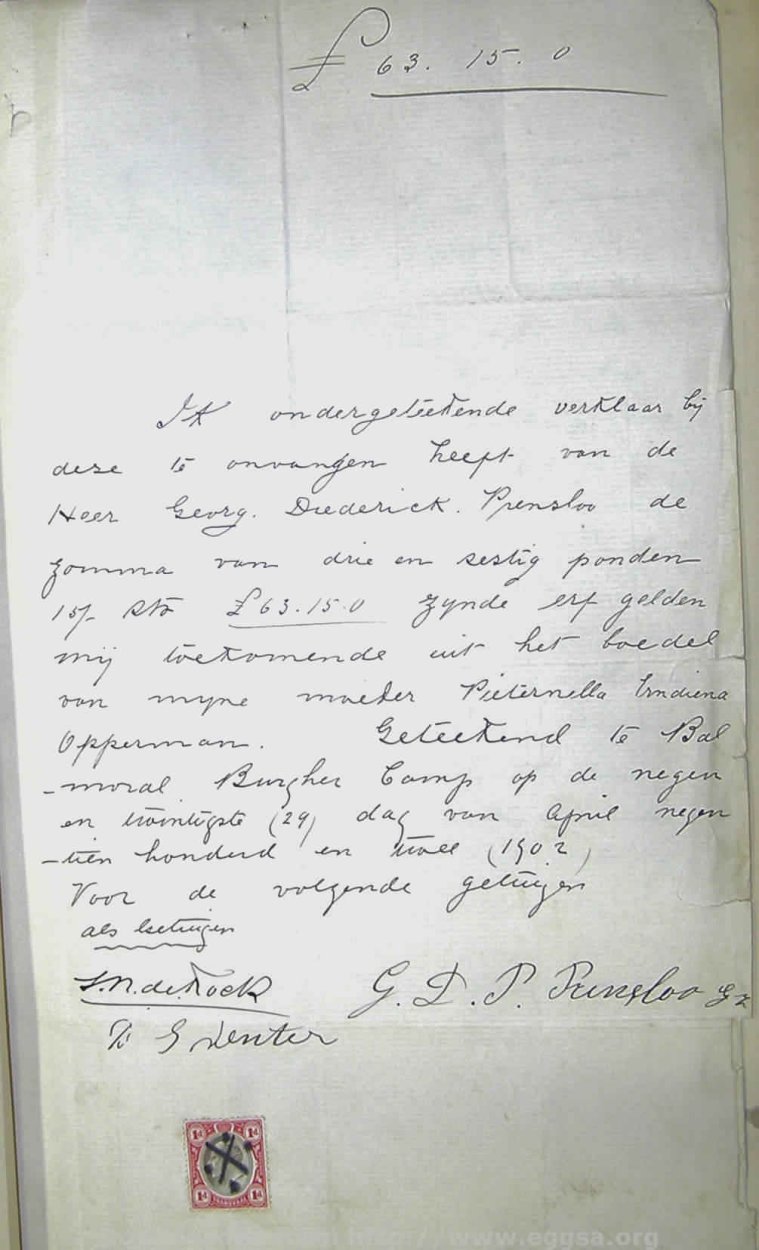 £ 63. 15. 0
Ik ondergeteekende verklaar bij
deze te onvangen heeft van de
Heer Georg. Diederick. Prensloo de
zomma van drie en sestig ponden
15/- Stg £63.15.0 zynde erf gelden
mij toekomende uit het boedel
van myne moeder Pieternella
Opperman. Geteekend te Bal
-moral Burgher Camp op de negen
en twintigste (29) dag van April negen
-tien honderd en twee (1902)
Voor de volgende getuigen
als Getuigen
de Kock G. D. P. Prensloo
Venter
1d 1d
1d 1d
www.eggsa.org